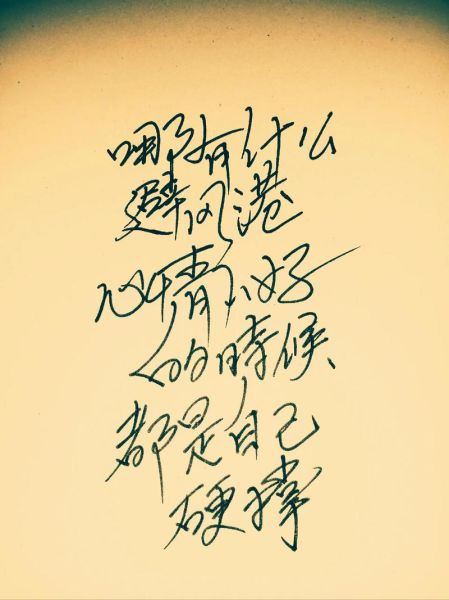 哪有什么
避风港
心情不好
的時候
都是自己
硬撑